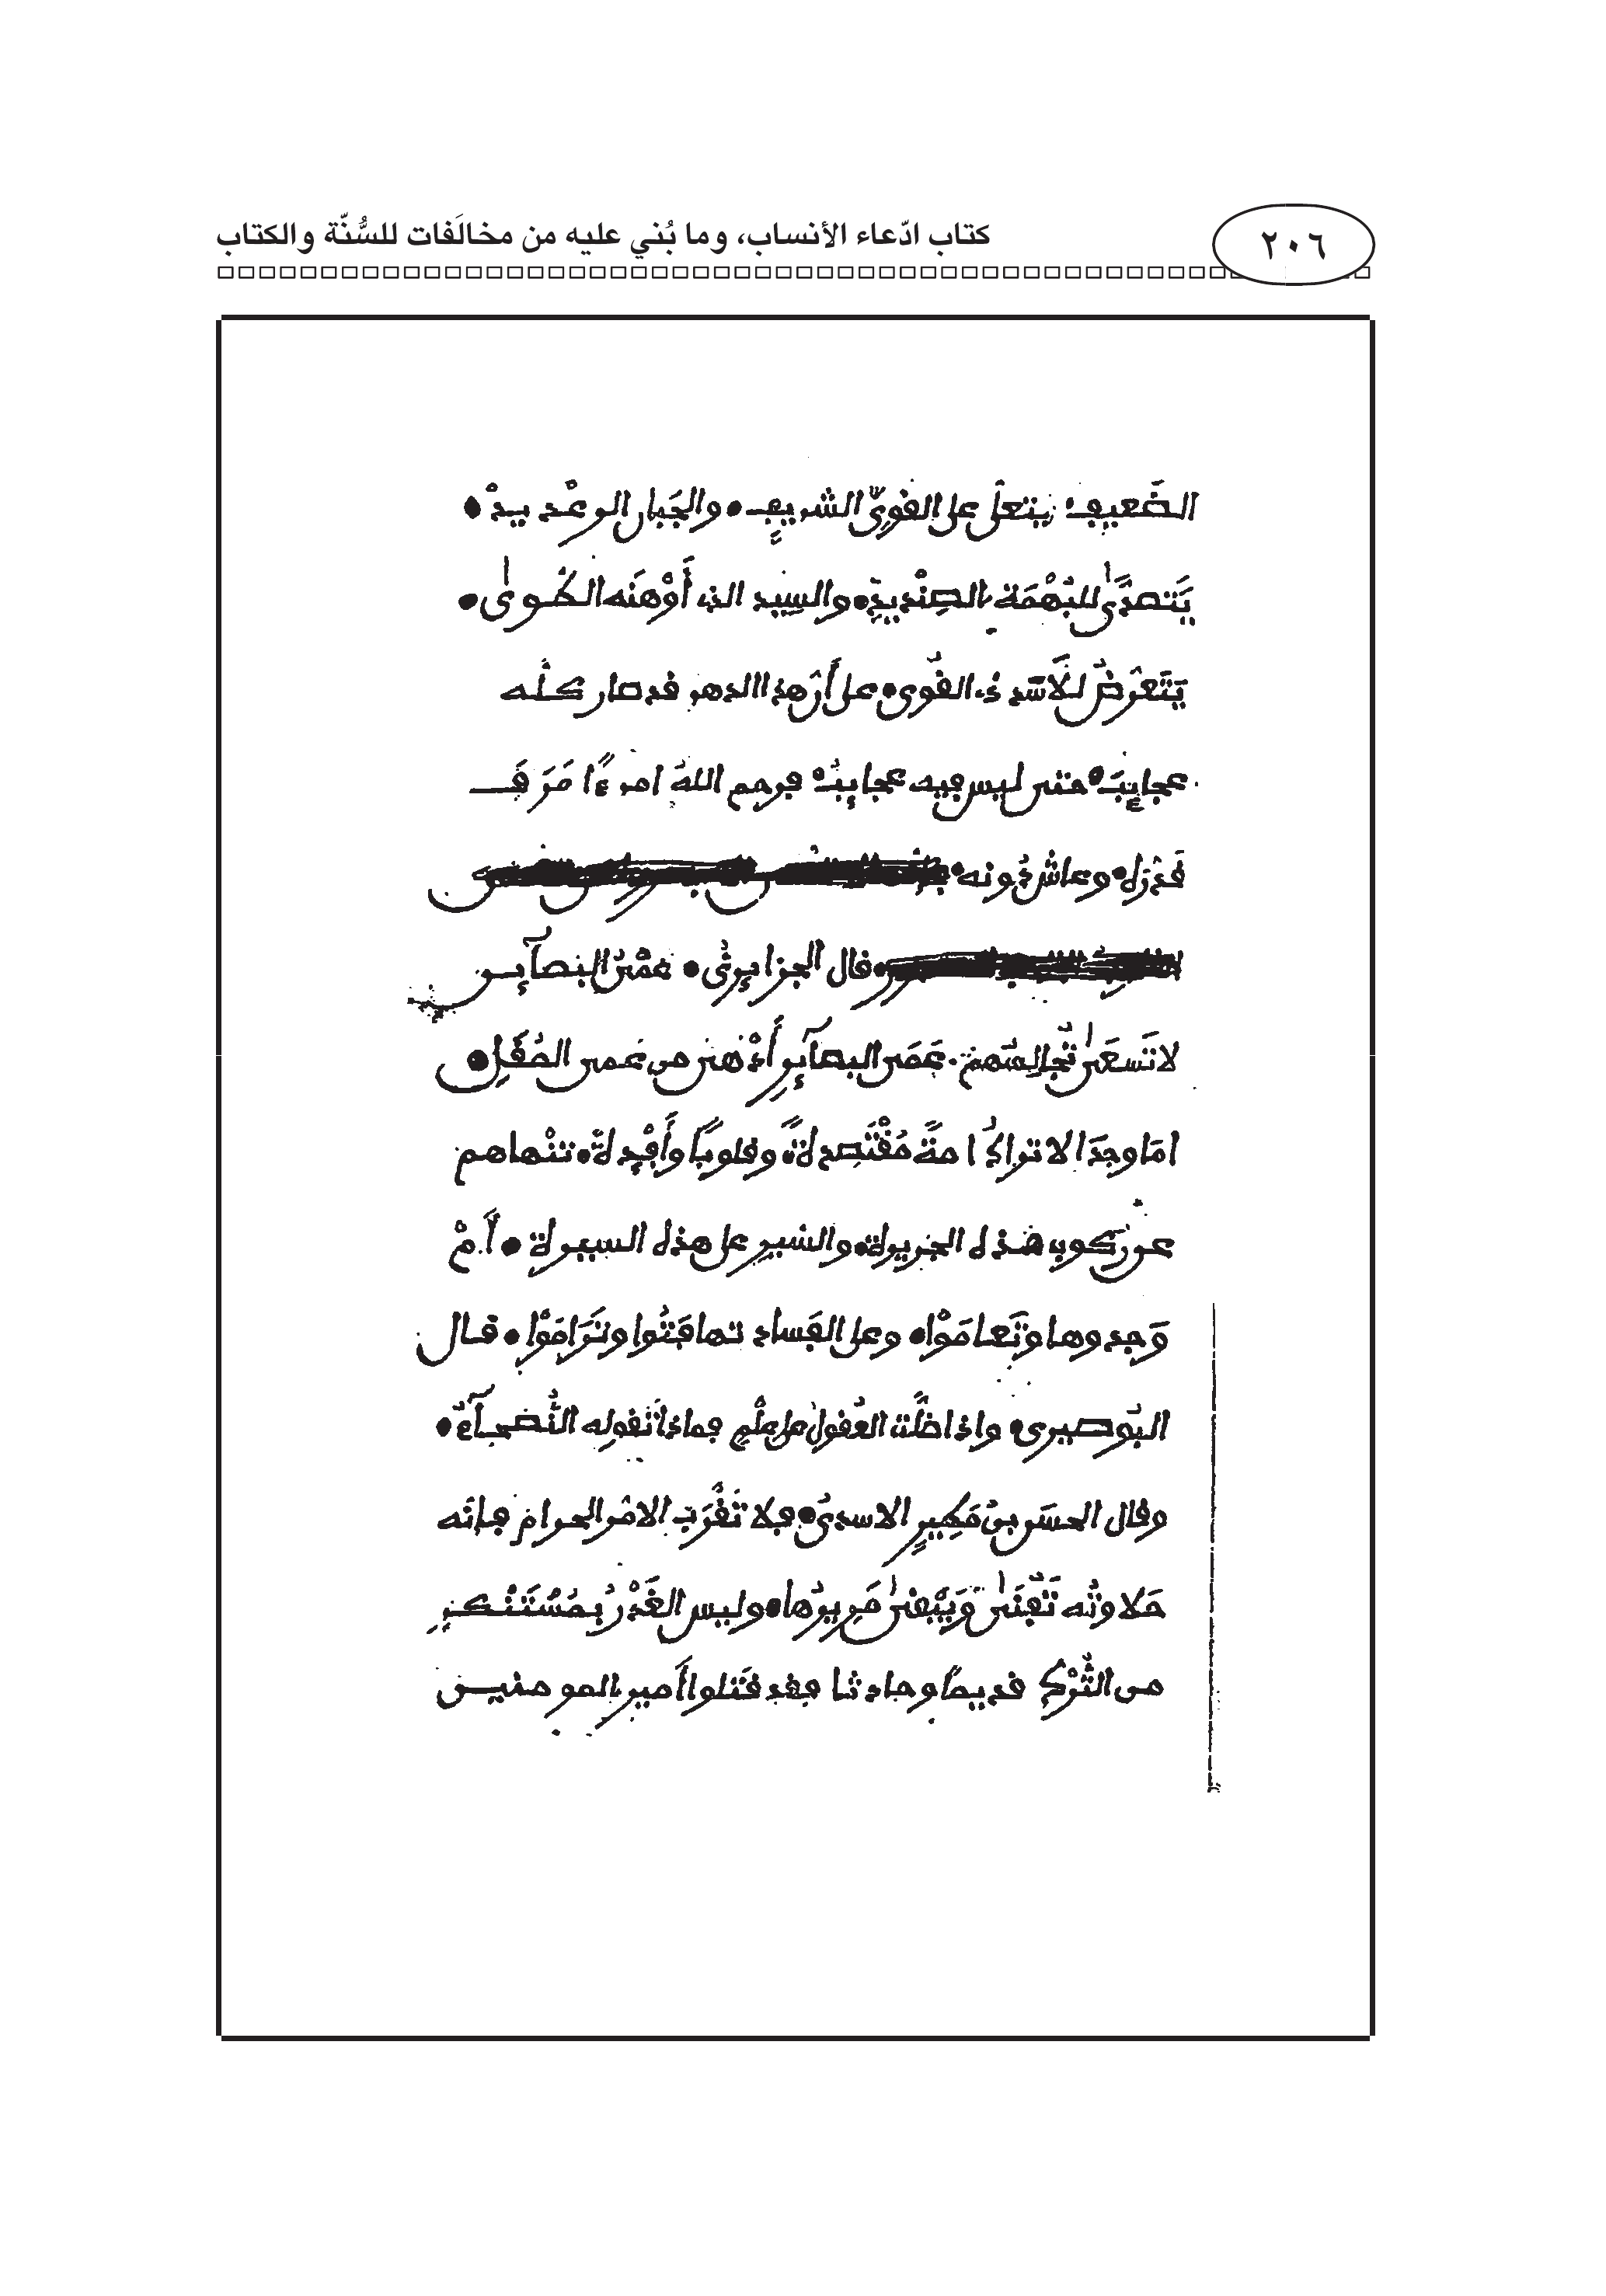 ٢٠٦
كتاب ادّعاء الأنساب، وما بُني عليه من مخالَفات للسُّنّة والكتاب
الضَّعيف يتعلى على القوِيّ الشريف • والجَبان الرعْديدْ •
يَتصدَّى للبُهْمَة الصِنْديدِ • والسِيد الذي أَوْهَنَه الطَوى •
يَتَعَرَّضُ لـلأسَد ذي القُوى • على أن هذا الدهر قد صار كـلـه
عجايبَ • حتى ليس فيه عجايبُ • فرحم اللهُ امرءًا عَرَفَ
قَدْرَه • وعاش دُونه •
قال الجزايرِيُّ • عُمْيُ البصآيِـر
لا تَسعَى تُجالِسُهم • عَمَى البصآيِرِ أَدْهى من عَمى المُقَلِ •
امَا وجَدَ الاتراكُ امةً مُقْتَصِدةً • وقلوبًا وأَفْيِدةً • تنْهاهم
عن ركوب هـذه الجريرة • والسَّير على هذه السيرة • أَمْ
وَجدوها وتَعامَوْا • وعلى الفَساد تهافَتُوا وتَرَامَوْا • قـال
البُوصيري • واذا ضلَّت العُقول على علْمٍ فماذا تَقوله النُّصَحـآءُ •
وقال الحسَن بنُ مَطِيرٍ الاسديُّ • فلا تَقْرَبِ الامْر الحرام فإنَّه
حَلاوتُه تَفْنَى ويَبْقى مَرِيرُها • وليس الغَدْرُ بِمُسْتَنْكَرٍ
من التُّرْكِ قديمًا وحادثا فقد قَتلوا أَمير المومنيـن